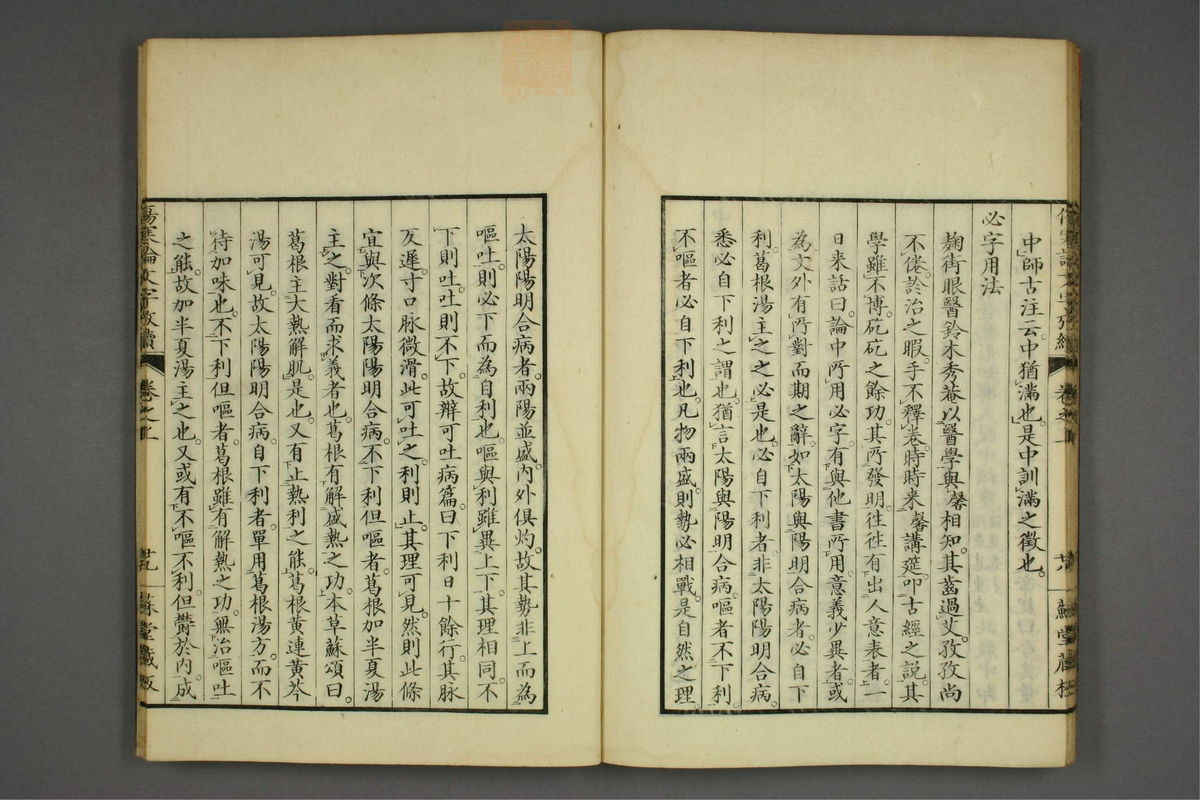 中師古注云中猶滿也是中訓滿之徵也
必字用法
麹街眼醫鈴木秀菴以醫學與馨相知其齒過艾孜孜尚
不倦於治之暇手不釋卷時時來馨講筵叩古經之說其
學雖不博矻矻之餘功其所發明往往有出人意表者一
日來詁曰論中所用必字有與他書所用意義少異者或
為文外有所對而期之辭如太陽與陽明合病者必自下
利葛根湯主之之必是也必自下利者非太陽陽明合病
悉必自下利之謂也猶言太陽與陽明合病嘔者不下利
不嘔者必自下利也凡物兩盛則勢必相戰是自然之理
太陽陽明合病者兩陽並盛內外俱灼故其勢非上而為
嘔吐則必下而為自利也嘔與利雖異上下其理相同不
下則吐吐則不下故辯可吐病篇曰下利日十餘行其脉
反遲寸口脉微滑此可吐之利則止其理可見然則此條
宜與次條太陽陽明合病不下利但嘔者葛根加半夏湯
主之對看而求義者也葛根有解盛熱之功本草蘇頌曰
葛根主大熱解肌是也又有止熱利之能葛根黃連黃芩
湯可見故太陽陽明合病自下利者單用葛根湯方而不
待加味也不下利但嘔者葛根雖有解熱之功無治嘔吐
之能故加半夏湯主之也又或有不嘔不利但鬱於內成
傷寒論文字攷續
卷之上
廿九
蘇堂藏版